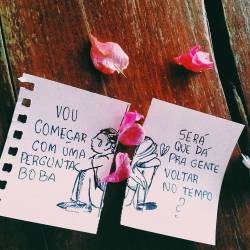 VOU
COMEÇAR
COM UMA
PERGUNTA
BOBA
SERÁ
QUE DÁ
PRA GENTE
VOLTAR
NO TEMPO
?